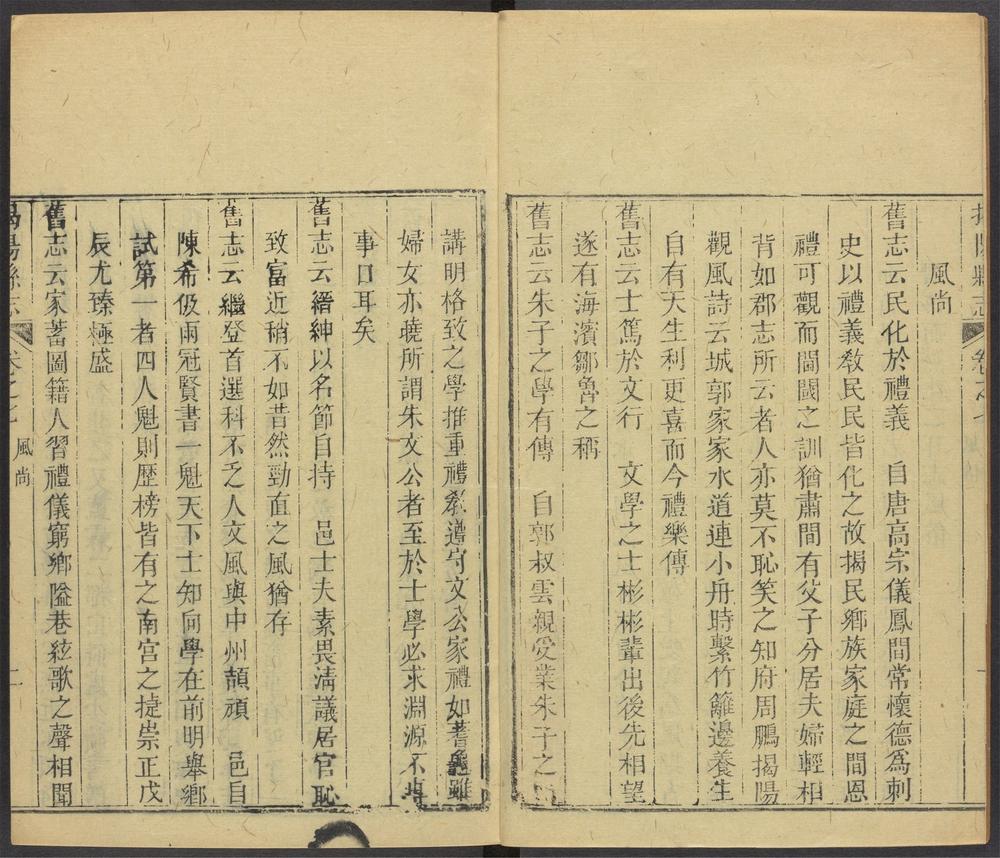 揭陽縣志 卷之七
風尚
舊志云民化於禮義 自唐高宗儀鳳間常懷德爲刺
史以禮義敎民民皆化之故揭民鄉族家庭之間恩
禮可觀而閨閫之訓猶肅間有父子分居夫婦輕相
背如郡志所云者人亦莫不恥笑之知府周鵬揭陽
觀風詩云城郭家家水道連小舟時繫竹籬邊養生
自有天生利更喜而今禮樂傳
舊志云士篤於文行 文學之士彬彬輩出後先相望
遂有海濱鄒魯之稱
舊志云朱子之學有傳 自郭叔雲親受業朱子之
講明格致之學推重禮敎遵守文公家禮如蓍龜雖
婦女亦曉所謂朱文公者至於士學必求淵源不
事口耳矣
舊志云縉紳以名節自持 邑士夫素畏淸議居官恥
致富近稍不如昔然勁直之風猶存
舊志云繼登首選科不乏人文風與中州頡頏 邑自
陳希伋兩冠賢書一魁天下士知向學在前明舉鄉
試第一者四人魁則歷榜皆有之南宮之捷崇正戊
辰尤臻極盛
舊志云家蓄圖籍人習禮儀窮鄉隘巷絃歌之聲相聞
揭陽縣志 卷之七 風尚 二